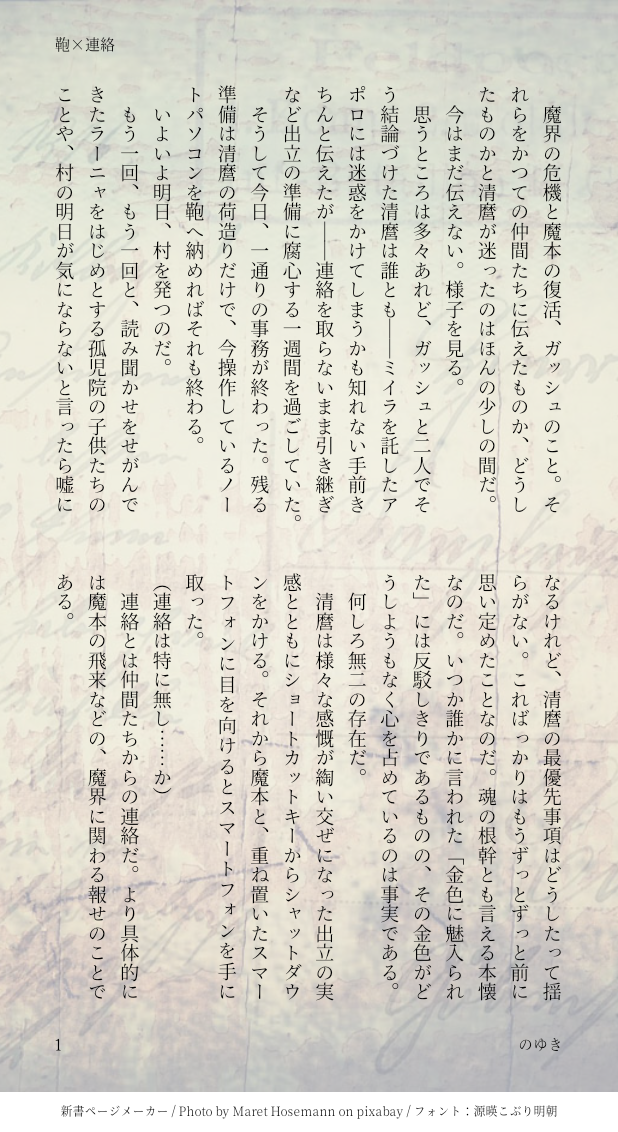 鞄×連絡
　魔界の危機と魔本の復活、ガッシュのこと。そ
れらをかつての仲間たちに伝えたものか、どうし
たものかと清麿が迷ったのはほんの少しの間だ。
　今はまだ伝えない。様子を見る。
　思うところは多々あれど、ガッシュと二人でそ
う結論づけた清麿は誰とも――ミイラを託したア
ポロには迷惑をかけてしまうかも知れない手前き
ちんと伝えたが――連絡を取らないまま引き継ぎ
など出立の準備に腐心する一週間を過ごしていた。
　そうして今日、一通りの事務が終わった。残る
準備は清麿の荷造りだけで、今操作しているノー
トパソコンを鞄へ納めればそれも終わる。
　いよいよ明日、村を発つのだ。
　もう一回、もう一回と、読み聞かせをせがんで
きたラーニャをはじめとする孤児院の子供たちの
ことや、村の明日が気にならないと言ったら嘘に
なるけれど、清麿の最優先事項はどうしたって揺
らがない。こればっかりはもうずっとずっと前に
思い定めたことなのだ。魂の根幹とも言える本懐
なのだ。いつか誰かに言われた「金色に魅入られ
た」には反駁しきりであるものの、その金色がど
うしようもなく心を占めているのは事実である。
　何しろ無二の存在だ。
　清麿は様々な感慨が綯い交ぜになった出立の実
感とともにショートカットキーからシャットダウ
ンをかける。それから魔本と、重ね置いたスマー
トフォンに目を向けるとスマートフォンを手に
取った。
（連絡は特に無し……か）
　連絡とは仲間たちからの連絡だ。より具体的に
は魔本の飛来などの、魔界に関わる報せのことで
ある。
1
のゆき
新書ページメーカー / Photo by Maret Hosemann on pixabay / フォント：源暎こぶり明朝